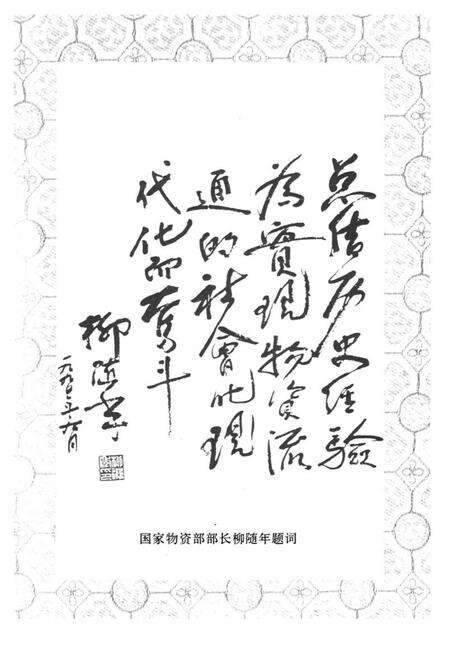 总结历史经验
为實現物资流
通的社會化現
代化而奮斗
柳随年
一九九〇年六月
国家物资部部长柳随年题词